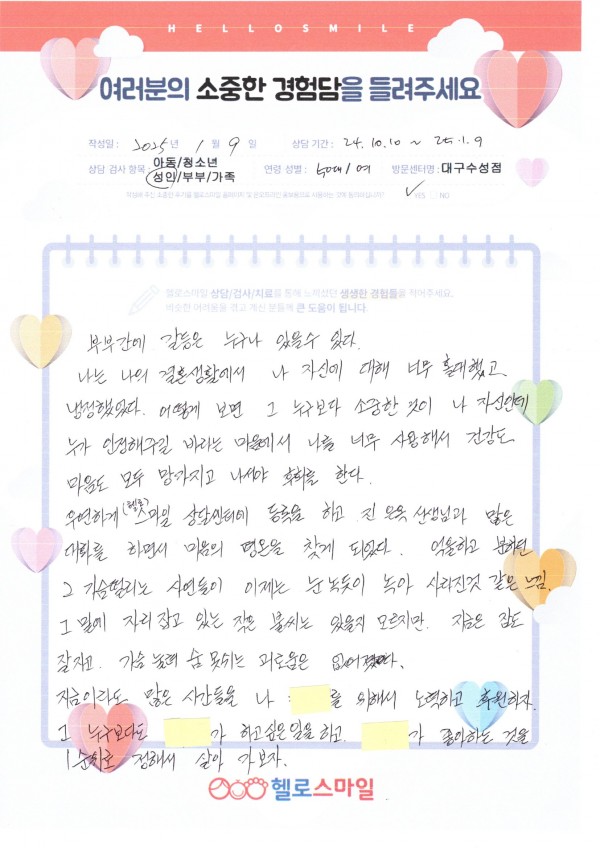 HELLOSMILE
여러분의 소중한 경험담을 들려주세요
작성일 : 2025년 1월 9일 상담 기간 : 24.10.10 ~ 25.1.9
상담 검사 항목 : 아동/청소년 성인/부부/가족 연령 성별 : 50대/여 방문센터명 : 대구수성점
YES NO
헬로스마일 상담/검사/치료를 통해 느끼셨던 생생한 경험들을 적어주세요.
비슷한 어려움을 겪고 계신 분들께 큰 도움이 됩니다.
부부간에 갈등은 누구나 있을수 있다.
나는 나의 결혼생활에서 나 자신에 대해 너무 홀대했고
냉정했었다. 어떻게 보면 그 누구보다 소중한 것이 나 자신인데
누가 인정해주길 바라는 마음에서 나를 너무 사용해서 건강도
마음도 모두 망가지고 나서야 후회를 한다.
우연하게 (헬로)스마일 상담센터에 등록을 하고 진 선생님과 많은
대화를 하면서 마음의 평온을 찾게 되었다. 억울하고 분하던
그 가슴떨리는 사연들이 이제는 눈 녹듯이 녹아 사라진것 같은 느낌.
그 밑에 자리 잡고 있는 작은 불씨는 있을지 모르지만. 지금은 잠도
잘자고. 가슴 눌려 숨 못쉬는 괴로움은 없어졌다.
지금이라도 많은 시간들을 나 를 위해서 노력하고 후원하자.
그 누구보다도 가 하고싶은 일을 하고. 가 좋아하는 것을
1순위로 정해서 살아 가보자.
헬로스마일